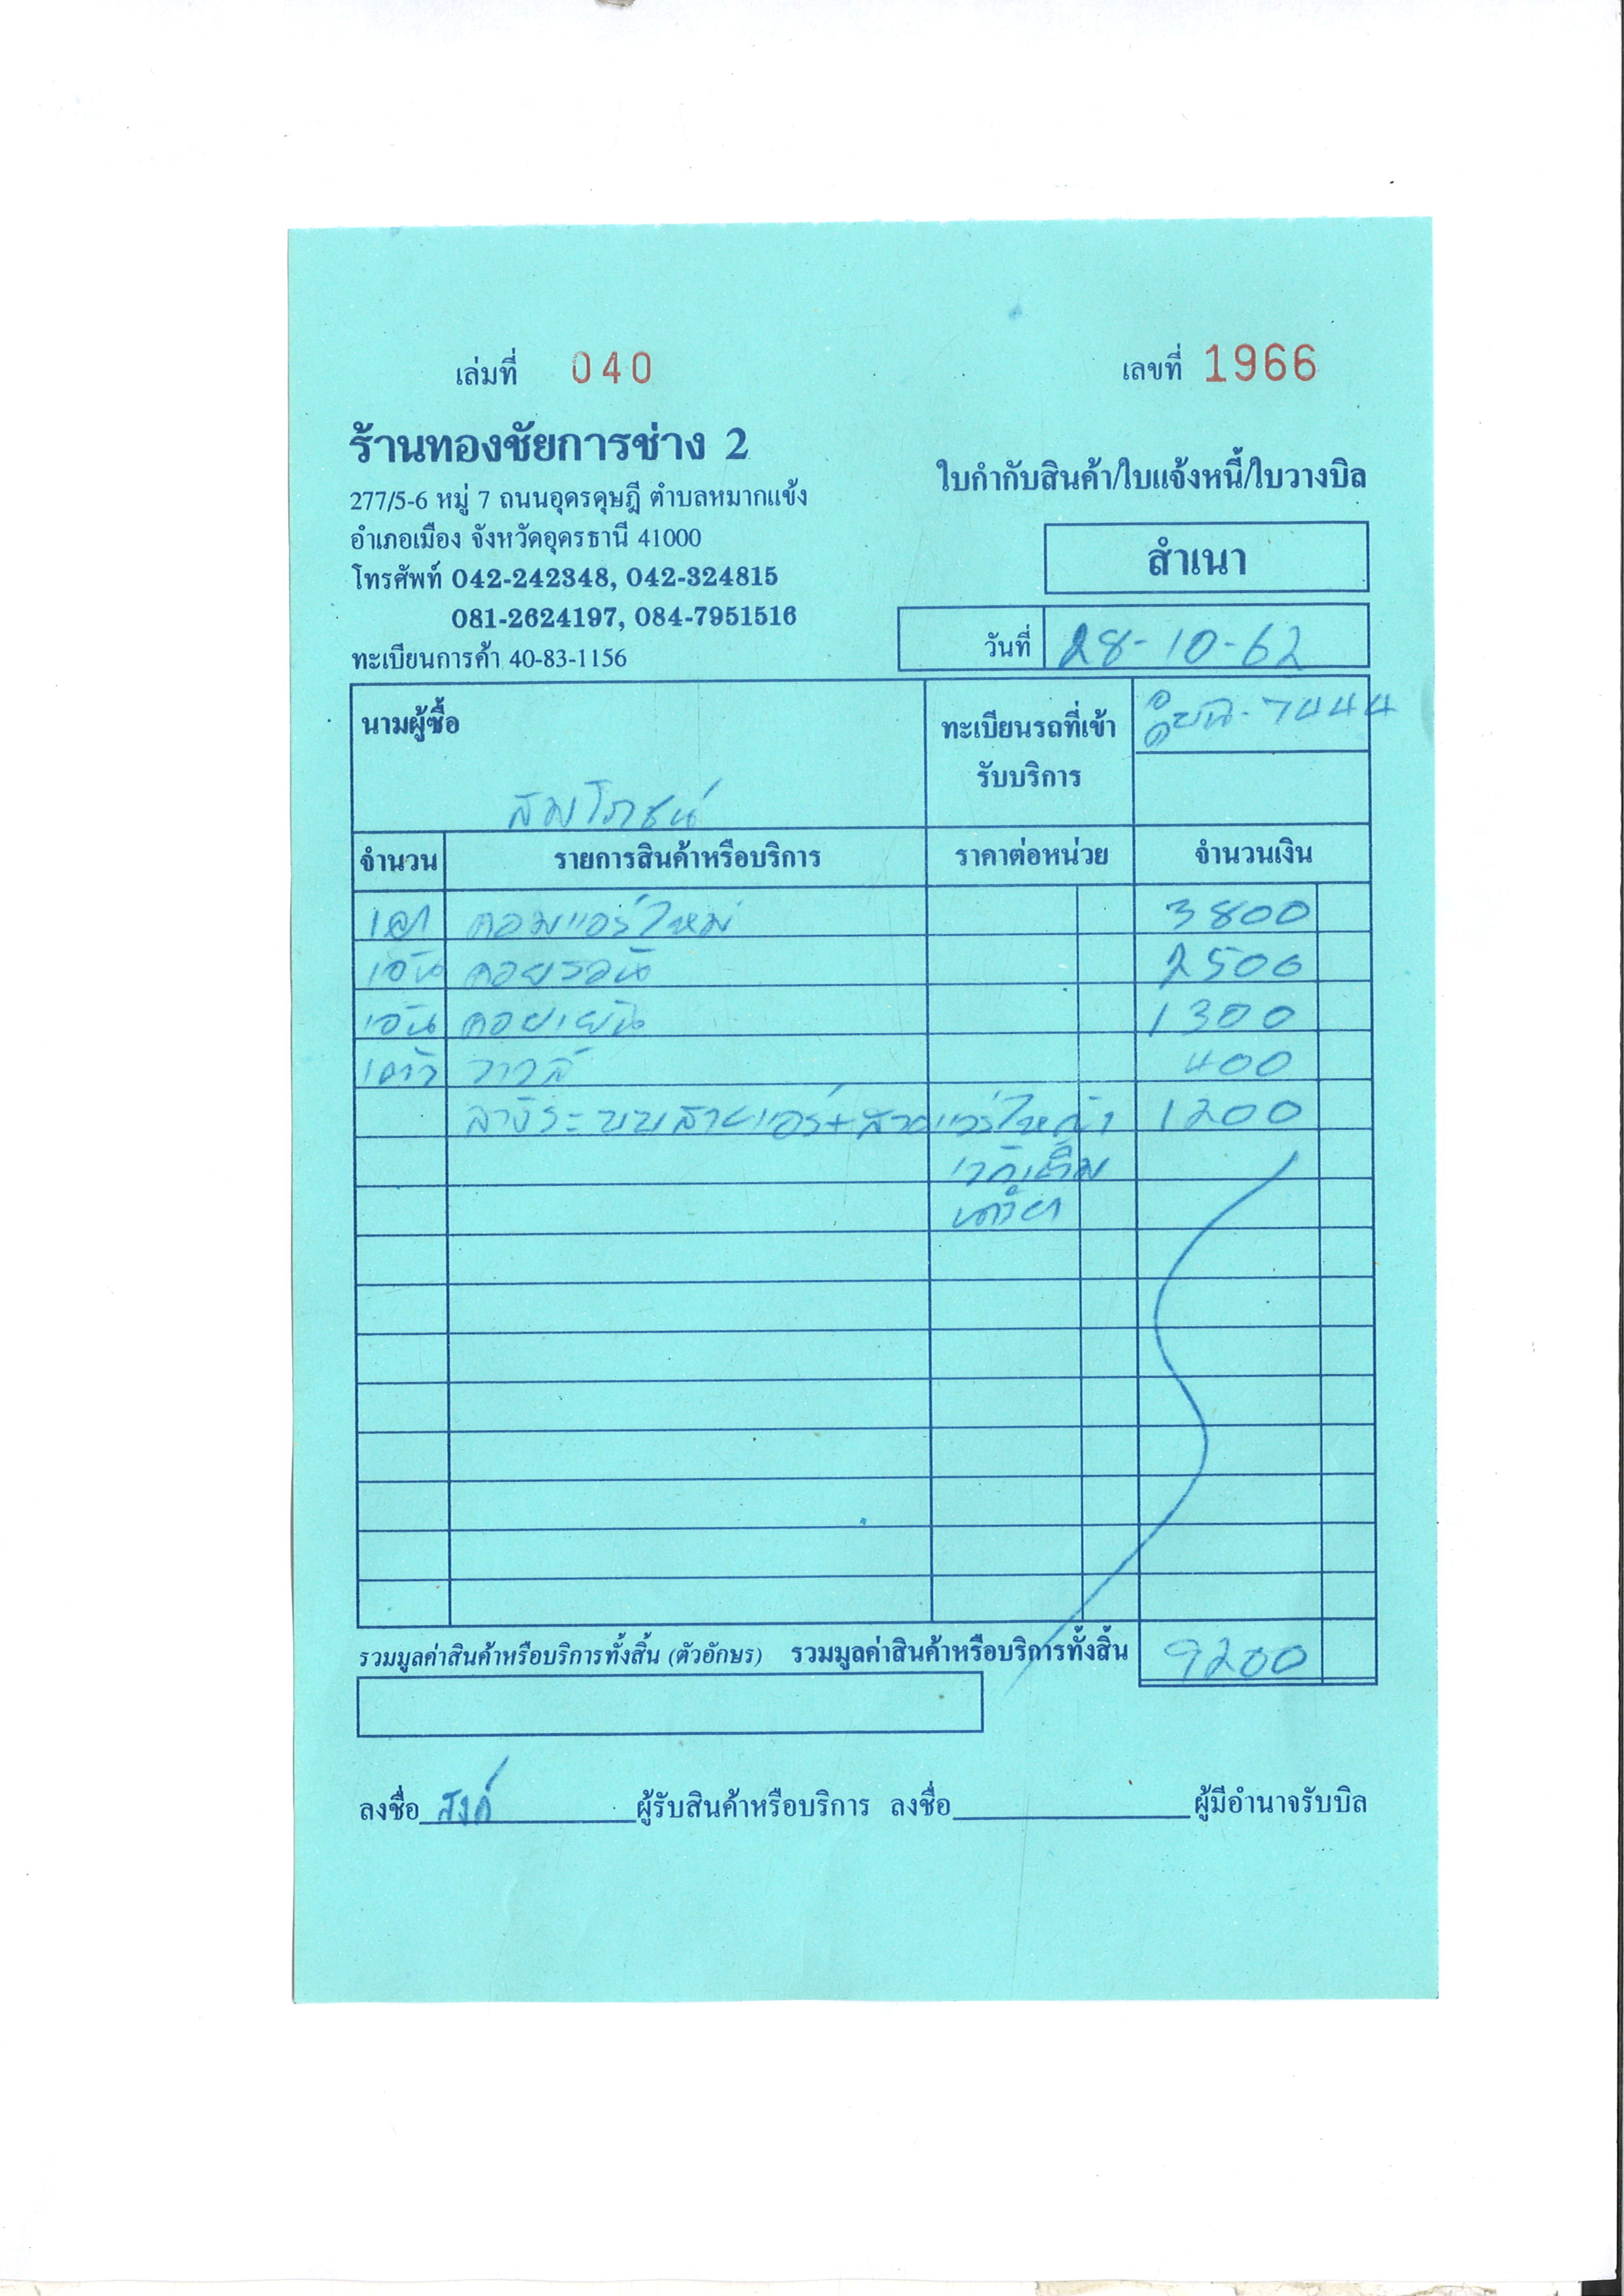 เล่มที่ 040
เลขที่ 1966
ร้านทองชัยการช่าง 2
ใบกำกับสินค้า/ใบแจ้งหนี้/ใบวางบิล
277/5-6 หมู่ 7 ถนนอุดรดุษฎี ตำบลหมากแข้ง
อำเภอเมือง จังหวัดอุดรธานี 41000
สำเนา
โทรศัพท์ 042-242348, 042-324815
081-2624197, 084-7951516
วันที่ 28-10-62
ทะเบียนการค้า 40-83-1156
นามผู้ซื้อ
ทะเบียนรถที่เข้า
รับบริการ
7444
สัมโภชน์
จำนวน รายการสินค้าหรือบริการ ราคาต่อหน่วย จำนวนเงิน
1 คอมแอร์ใหม่ 3800
1อัน คอยร้อน 2500
1อัน คอยเย็น 1300
1ตัว วาวล์ 400
ล้างระบบสายแอร์+สายแอร์ใหญ่ 1200
รวมมูลค่าสินค้าหรือบริการทั้งสิ้น (ตัวอักษร) รวมมูลค่าสินค้าหรือบริการทั้งสิ้น 9200
ลงชื่อ ผู้รับสินค้าหรือบริการ ลงชื่อ ผู้มีอำนาจรับบิล